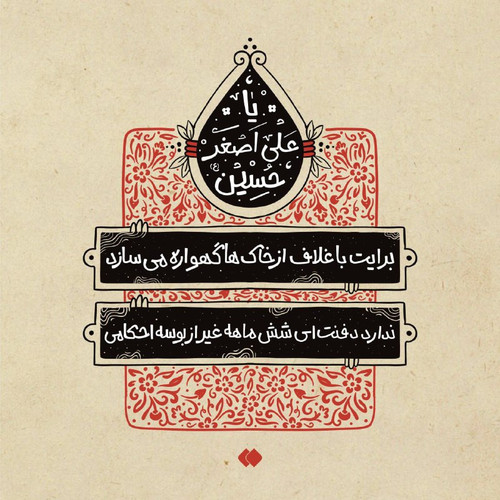 یا
عَلیِ اَصْغَرِ
حُسِیْن ؑ
برایت با غلاف از خاک ها گهواره می سازد
ندارد دفنت ای شش ماهه غیر از بوسه احکامی